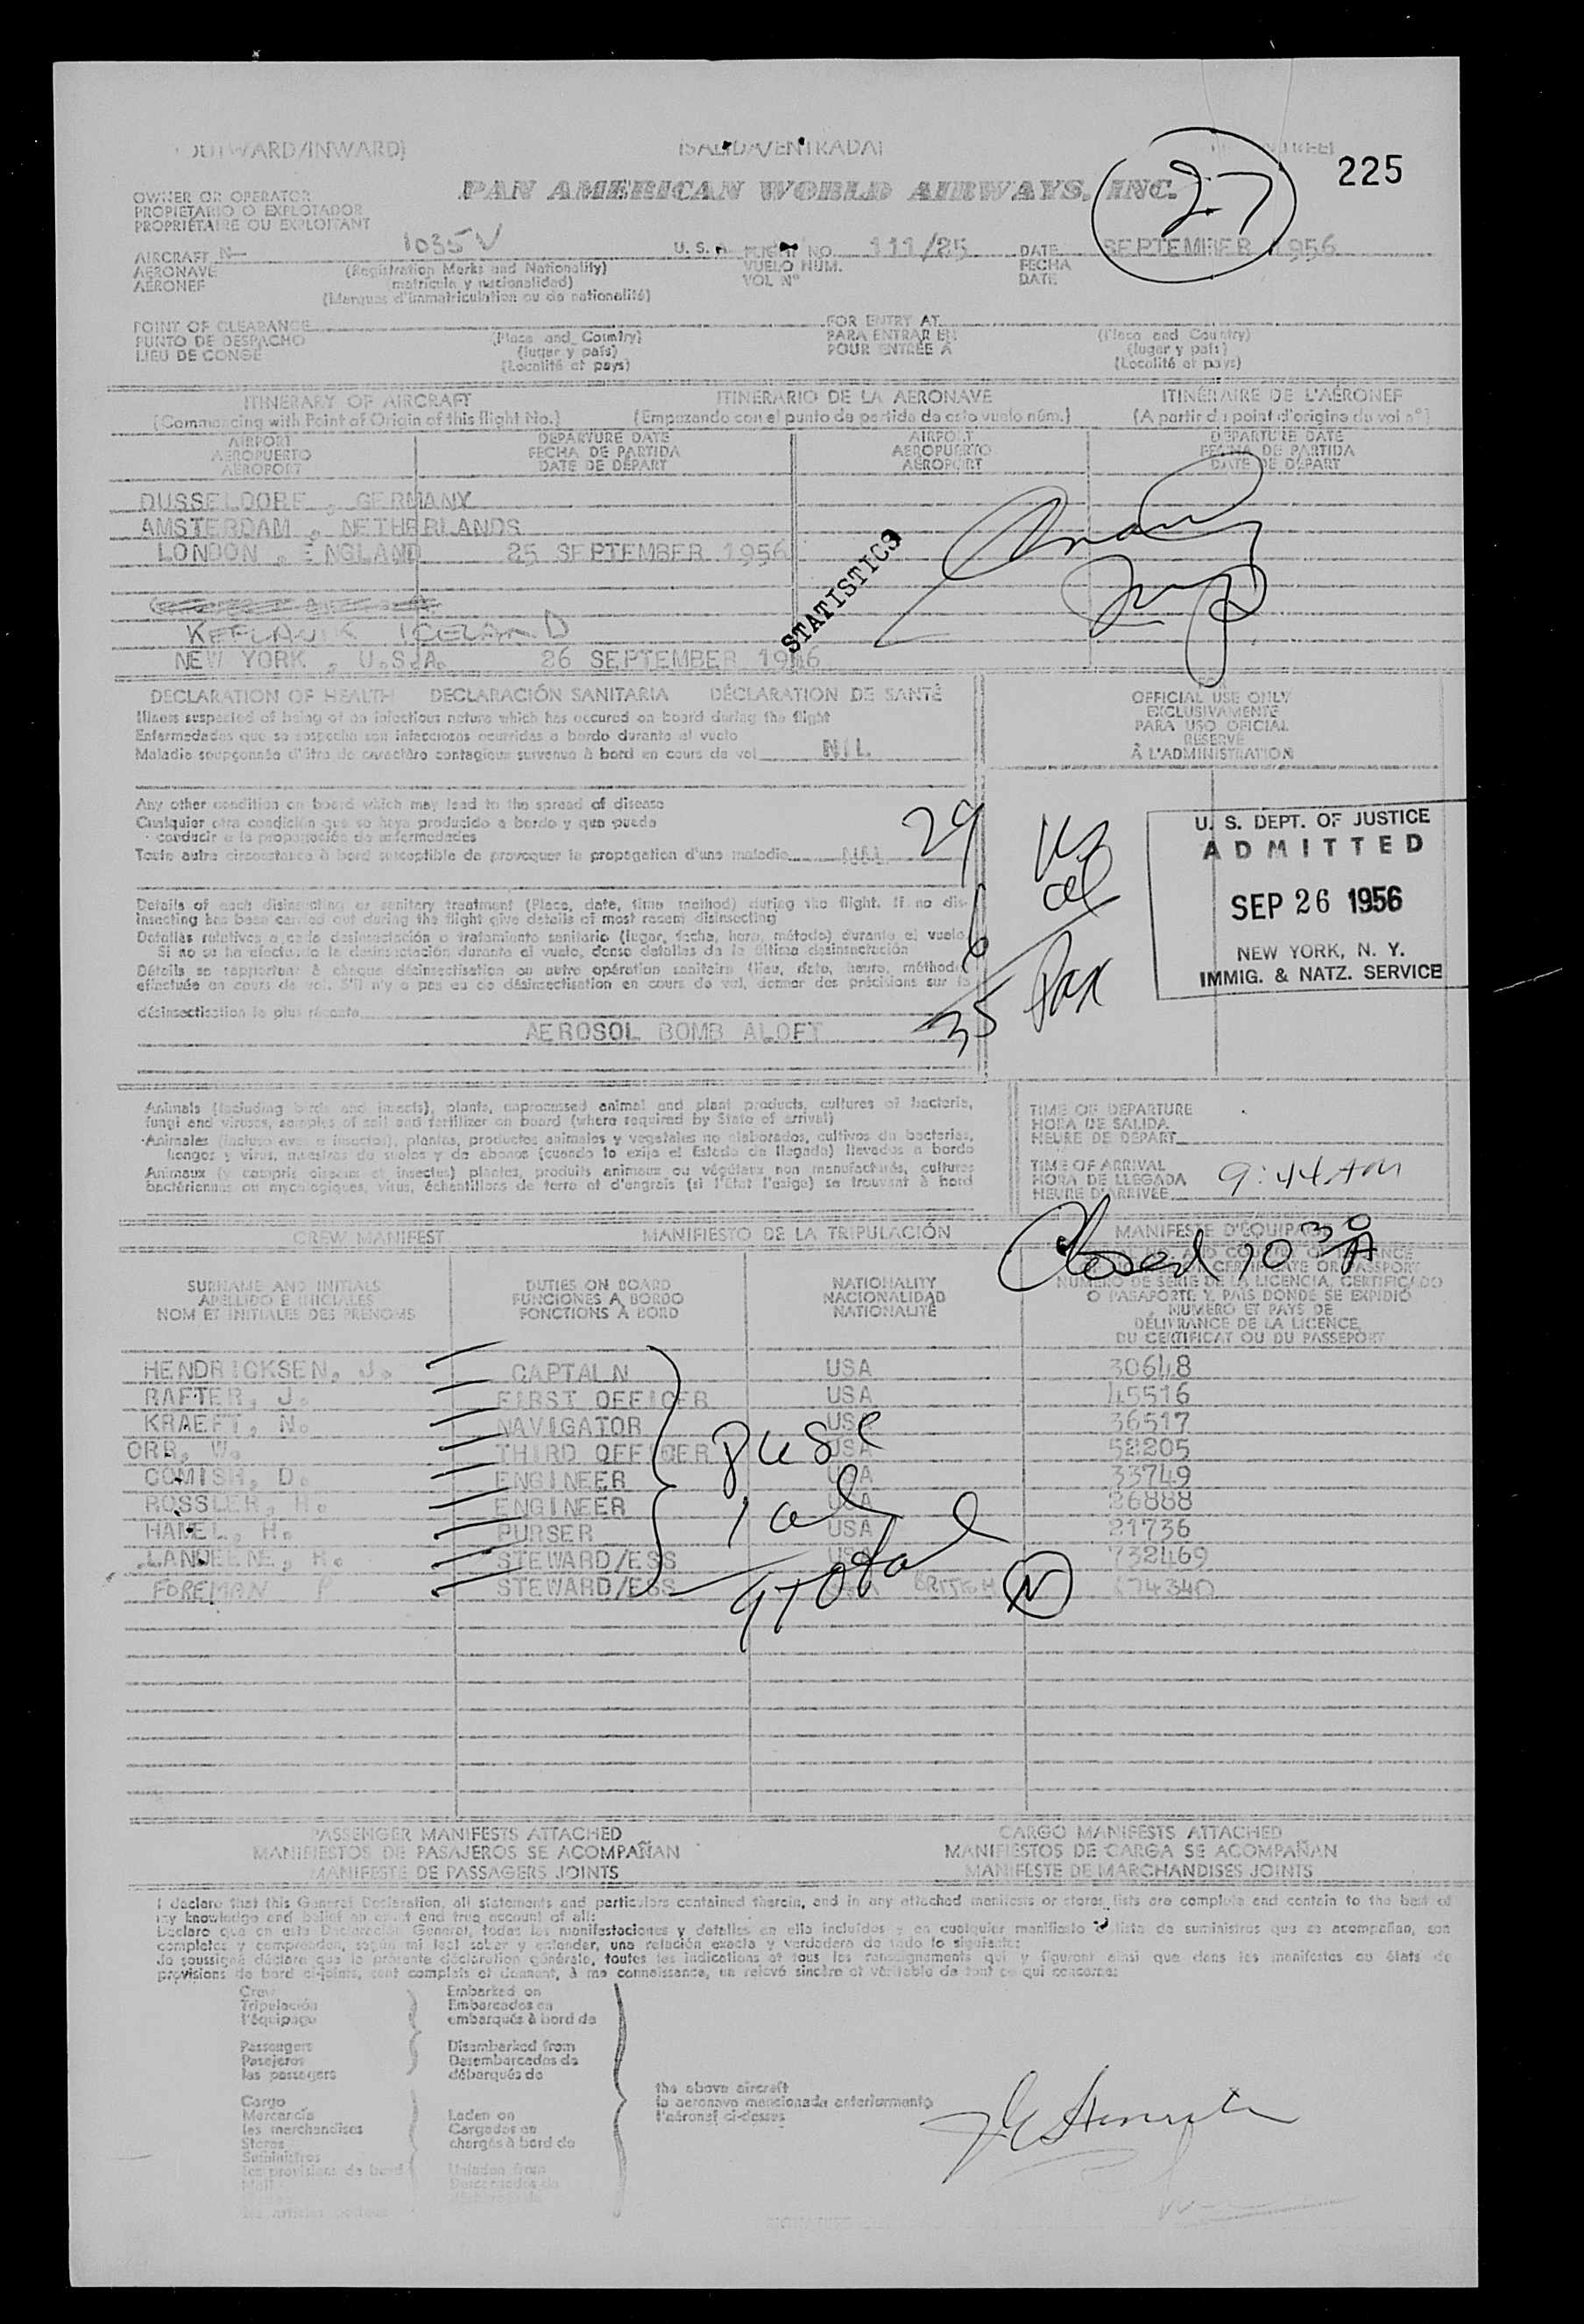 (OUTWARD/INWARD) (SALIDA/ENTRADA)
27 225
PAN AMERICAN WORLD AIRWAYS, INC.
OWNER OR OPERATOR
PROPIETARIO O EXPLOTADOR
PROPRIÉTAIRE OU EXPLOITANT
AIRCRAFT N- 1035V U. S. A. FLIGHT NO. 111/25 DATE SEPTEMBER 1956
AERONAVE (Registration Marks and Nationality) VUELO NÚM. FECHA
AÉRONEF (matrícula y nacionalidad) VOL N° DATE
(Marques d'immatriculation ou de nationalité)
POINT OF CLEARANCE FOR ENTRY AT
PUNTO DE DESPACHO (Place and Country) PARA ENTRAR EN (Place and Country)
LIEU DE CONGÉ (lugar y país) POUR ENTRÉE A (lugar y país)
(Localité et pays) (Localité et pays)
ITINERARY OF AIRCRAFT ITINERARIO DE LA AERONAVE ITINÉRAIRE DE L'AÉRONEF
(Commencing with Point of Origin of this flight No.) (Empezando con el punto de partida de este vuelo núm.) (A partir du point d'origine du vol n°)
AIRPORT DEPARTURE DATE AIRPORT DEPARTURE DATE
AEROPUERTO FECHA DE PARTIDA AEROPUERTO FECHA DE PARTIDA
AÉROPORT DATE DE DÉPART AÉROPORT DATE DE DÉPART
DUSSELDORF, GERMANY
AMSTERDAM, NETHERLANDS
LONDON, ENGLAND 25 SEPTEMBER 1956
STATISTICS
KEFLAVIK ICELAND
NEW YORK, U.S.A. 26 SEPTEMBER 1956
DECLARATION OF HEALTH DECLARACIÓN SANITARIA DÉCLARATION DE SANTÉ
FOR
OFFICIAL USE ONLY
EXCLUSIVAMENTE
PARA USO OFICIAL
RÉSERVÉ
À L'ADMINISTRATION
Illness suspected of being of an infectious nature which has occured on board during the flight
Enfermedades que se sospecha son infecciosas ocurridas a bordo durante el vuelo
Maladie soupçonnée d'être de caractère contagieux survenue à bord en cours de vol NIL
Any other condition on board which may lead to the spread of disease
Cualquier otra condición que se haya producido a bordo y que pueda
conducir a la propagación de enfermedades
Toute autre circonstance à bord susceptible de provoquer la propagation d'une maladie NIL
29 US
6 al
35 Pax
U. S. DEPT. OF JUSTICE
ADMITTED
SEP 26 1956
NEW YORK, N. Y.
IMMIG. & NATZ. SERVICE
Details of each disinsecting or sanitary treatment (Place, date, time method) during the flight. If no dis-
insecting has been carried out during the flight give details of most recent disinsecting
Detalles relativos a cada desinsectación o tratamiento sanitario (lugar, fecha, hora, método) durante el vuelo.
Si no se ha efectuado la desinsectación durante el vuelo, dense detalles de la última desinsectación
Détails se rapportant à chaque désinsectisation ou autre opération sanitaire (lieu, date, heure, méthode)
effectuée en cours de vol. S'il n'y a pas eu de désinsectisation en cours de vol, donner des précisions sur la
désinsectisation la plus récente
AEROSOL BOMB ALOFT
Animals (including birds and insects), plants, unprocessed animal and plant products, cultures of bacteria,
fungi and viruses, samples of soil and fertilizer on board (where required by State of arrival)
Animales (incluso aves e insectos), plantas, productos animales y vegetales no elaborados, cultivos de bacterias,
hongos y virus, muestras de suelos y de abonos (cuando lo exija el Estado de llegada) llevados a bordo
Animaux (y compris oiseaux et insectes) plantes, produits animaux ou végétaux non manufacturés, cultures
bactériennes ou mycologiques, virus, échantillons de terre et d'engrais (si l'État l'exige) se trouvant à bord
TIME OF DEPARTURE
HORA DE SALIDA
HEURE DE DÉPART
TIME OF ARRIVAL
HORA DE LLEGADA 9:44 AM
HEURE D'ARRIVÉE
Closed 10 30 A
CREW MANIFEST MANIFIESTO DE LA TRIPULACIÓN MANIFESTE D'ÉQUIPAGE
SURNAME AND INITIALS DUTIES ON BOARD NATIONALITY
APELLIDO E INICIALES FUNCIONES A BORDO NACIONALIDAD
NOM ET INITIALES DES PRÉNOMS FONCTIONS À BORD NATIONALITÉ
CERTIFICATE OR PASSPORT
NÚMERO DE SERIE DE LA LICENCIA, CERTIFICADO
O PASAPORTE Y PAÍS DONDE SE EXPIDIÓ
NUMÉRO ET PAYS DE
DÉLIVRANCE DE LA LICENCE,
DU CERTIFICAT OU DU PASSEPORT
HENDRICKSEN, J. CAPTAIN USA 30648
RAFTER, J. FIRST OFFICER USA 45516
KRAEFT, N. NAVIGATOR USA 36517
ORR, W. THIRD OFFICER USA 58205
COMISH, D. ENGINEER USA 33749
ROSSLER, H. ENGINEER USA 26888
HAMEL, H. PURSER USA 21736
LANDEENE, H. STEWARD/ESS USA 732469
FOREMAN P STEWARD/ESS BRITISH N 674340
8 USC
1 al
9 Total
PASSENGER MANIFESTS ATTACHED CARGO MANIFESTS ATTACHED
MANIFIESTOS DE PASAJEROS SE ACOMPAÑAN MANIFIESTOS DE CARGA SE ACOMPAÑAN
MANIFESTE DE PASSAGERS JOINTS MANIFESTE DE MARCHANDISES JOINTS
I declare that this General Declaration, all statements and particulars contained therein, and in any attached manifests or stores lists are complete and contain to the best of
my knowledge and belief an exact and true account of all:
Declaro que en esta Declaración General, todas las manifestaciones y detalles en ella incluídos y en cualquier manifiesto o lista de suministros que se acompañan, son
completos y comprenden, según mi leal saber y entender, una relación exacta y verdadera de todo lo siguiente:
Je soussigné déclare que la présente déclaration générale, toutes les indications et tous les renseignements qui y figurent ainsi que dans les manifestes ou états de
provisions de bord ci-joints, sont complets et donnent, à ma connaissance, un relevé sincère et véritable de tout ce qui concerne:
Crew Embarked on
Tripulación Embarcados en
l'équipage embarqués à bord de
Passengers Disembarked from
Pasajeros Desembarcados de
les passagers débarqués de
the above aircraft
la aeronave mencionada anteriormente
l'aéronef ci-dessus
Cargo
Mercancía Laden on
les marchandises Cargados en
Stores chargés à bord de
Suministros
les provisions de bord Unladen from
Mail